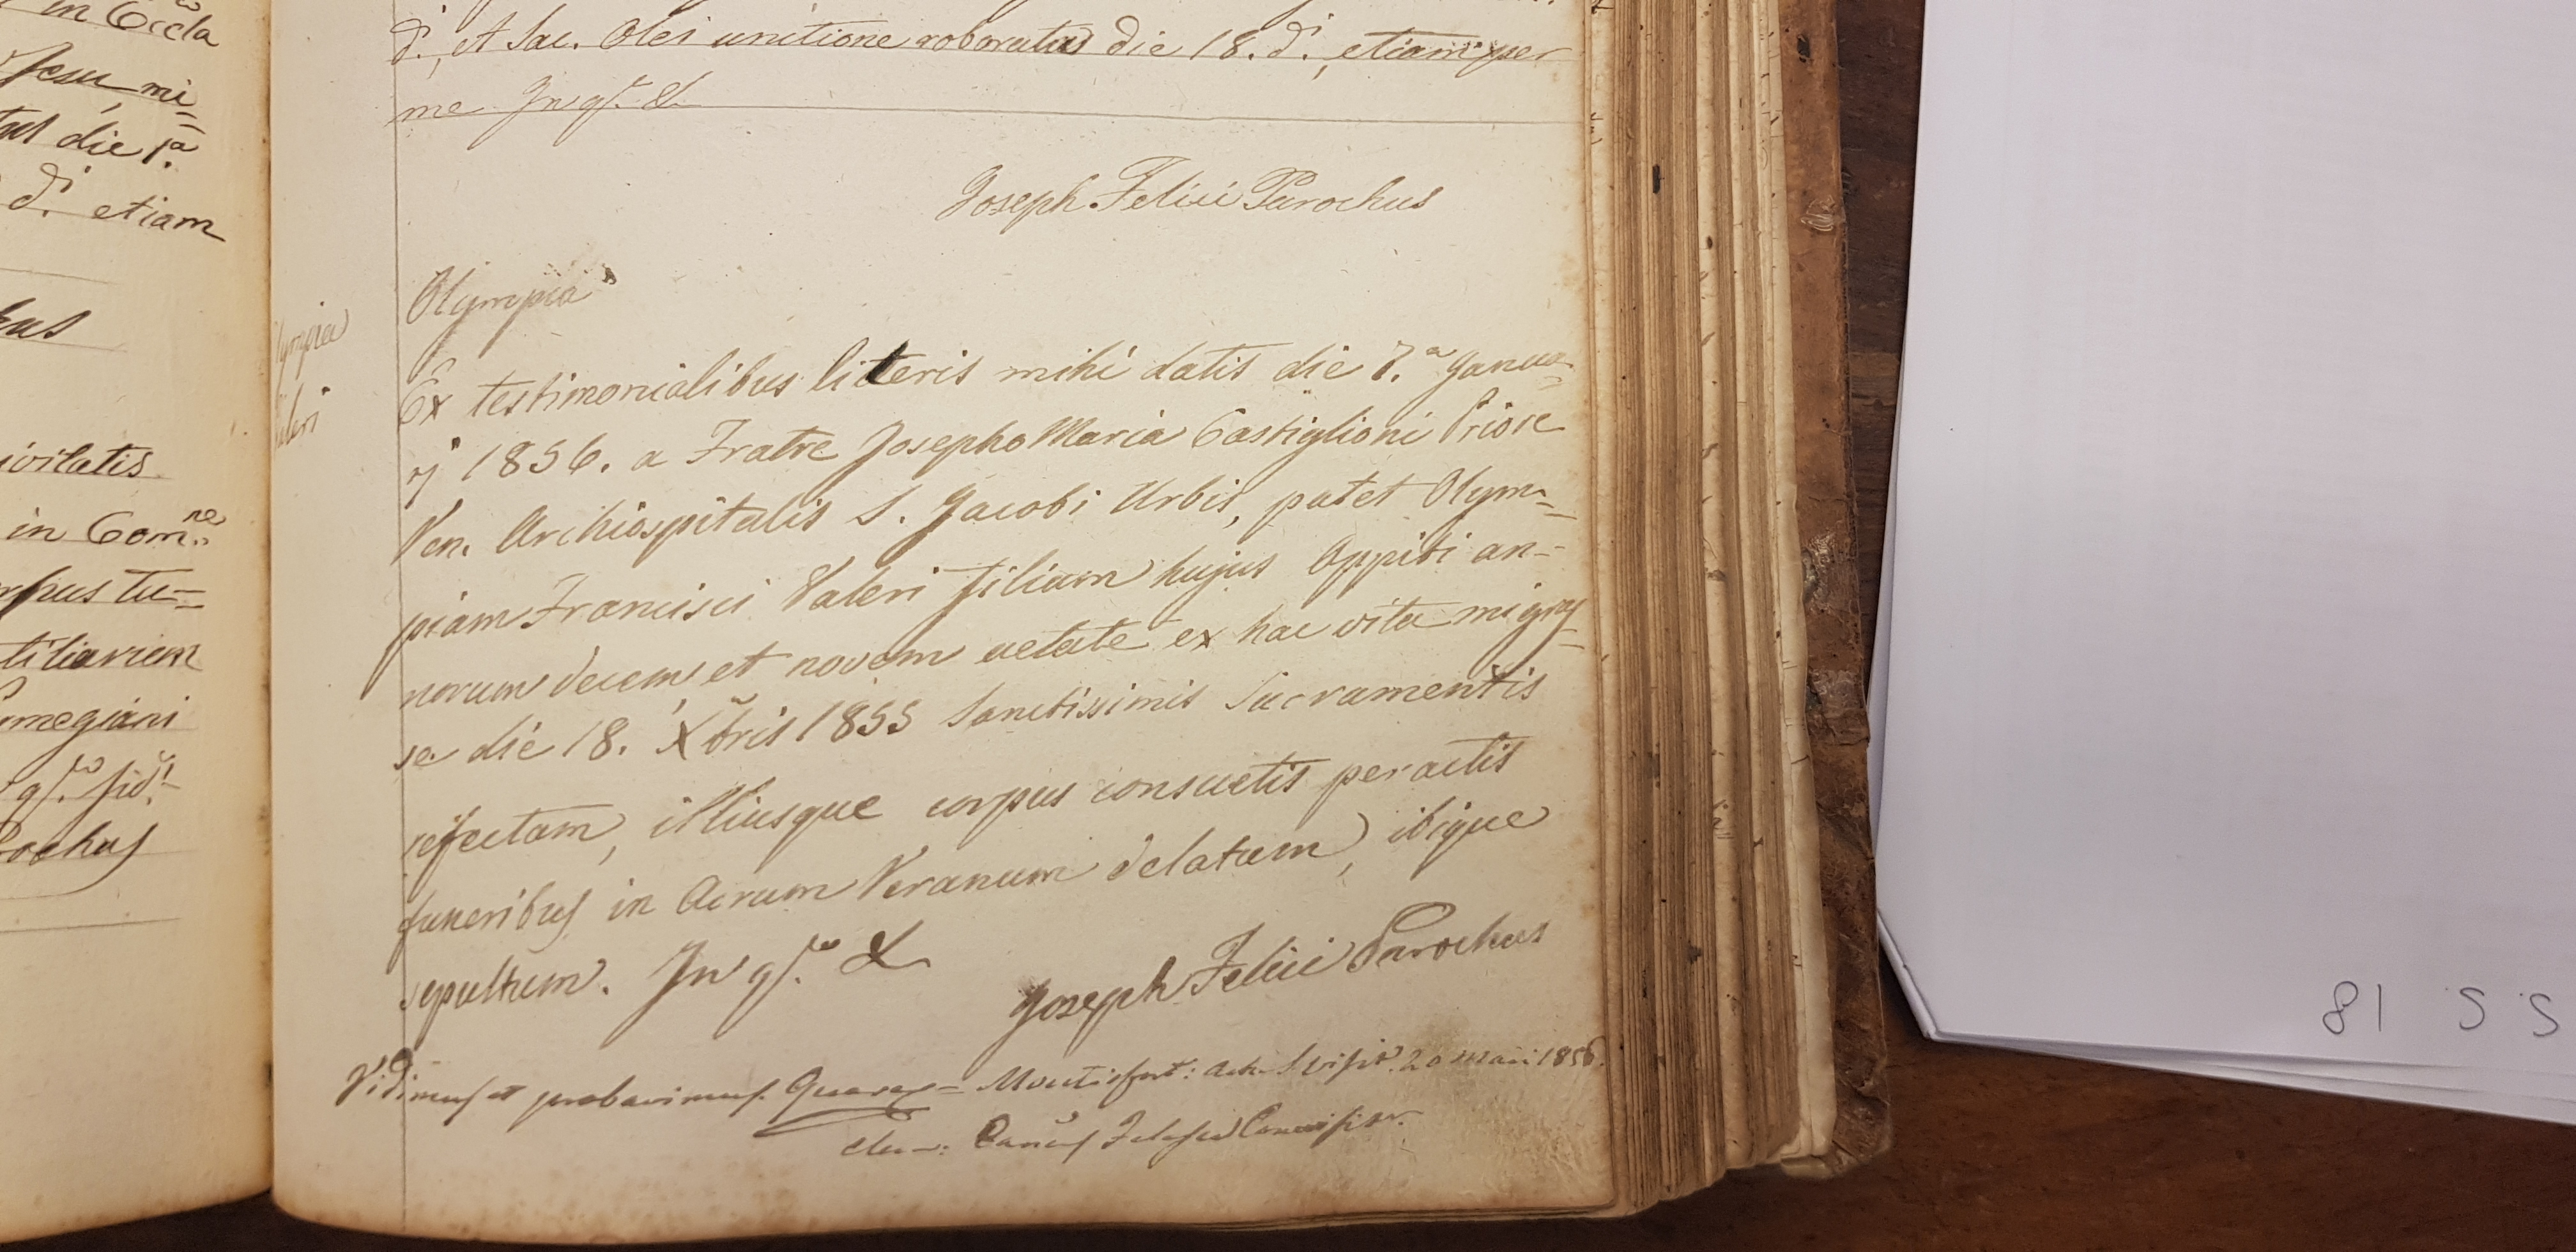 in Eccla
Jesu mi=
tus die 1ª
d.i etiam
hus
ivitatis
in Com.ne
rpus tu=
tiliarem
megiani
qr. fid.
rochus
lympia
aleri
d.i, et Sac. Olei unctione roboratus die 18. d.i, etiam per
me In qr. &
Joseph Felici Parochus
Olympia
Ex testimonialibus litteris mihi datis die 7.ª Janua=
rj 1856. a Fratre Josepho Maria Castiglioni Priore
Ven. Archiospitalis S. Jacobi Urbis, patet Olym=
piam Francisci Valeri filiam hujus Oppidi an=
norum decem et novem aetate ex hac vita migras=
se die 18. Xbris 1855 Sanctissimis Sacramentis
refectam, illiusque corpus consuetis peractis
funeribus in Acrum Veranum delatum, ibique
sepultum. In qr. &
Joseph Felici Parochus
Vidimus et probavimus. 20 Maii 1856.
81 S S